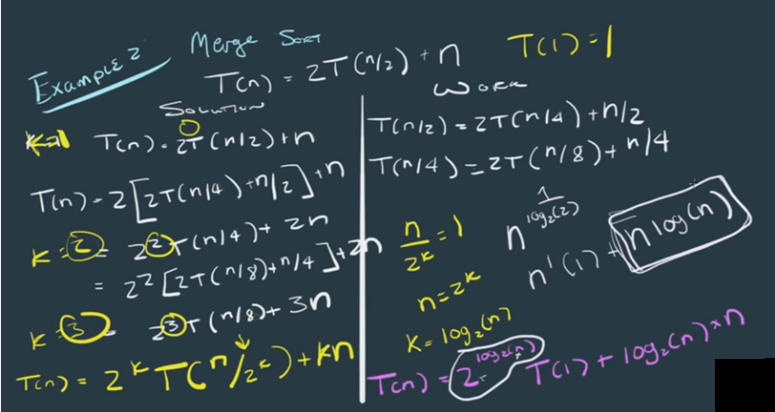 Example 2 Merge Sort
T(n) = 2T(n/2) + n
T(1) = 1
Solution
K=1 T(n) = 2T(n/2)+n
T(n) = 2[2T(n/4)+n/2]+n
K=2 = 2²T(n/4)+2n
= 2²[2T(n/8)+n/4]+2n
K=3 = 2³T(n/8)+3n
T(n) = 2ᵏT(n/2ᵏ)+kn
Work
T(n/2) = 2T(n/4)+n/2
T(n/4) = 2T(n/8)+n/4
n/2ᵏ = 1
n=2ᵏ
K=log₂(n)
1
n^log₂(2)
n¹(1) + n log(n)
T(n) = 2^log₂(n) T(1) + log₂(n)*n